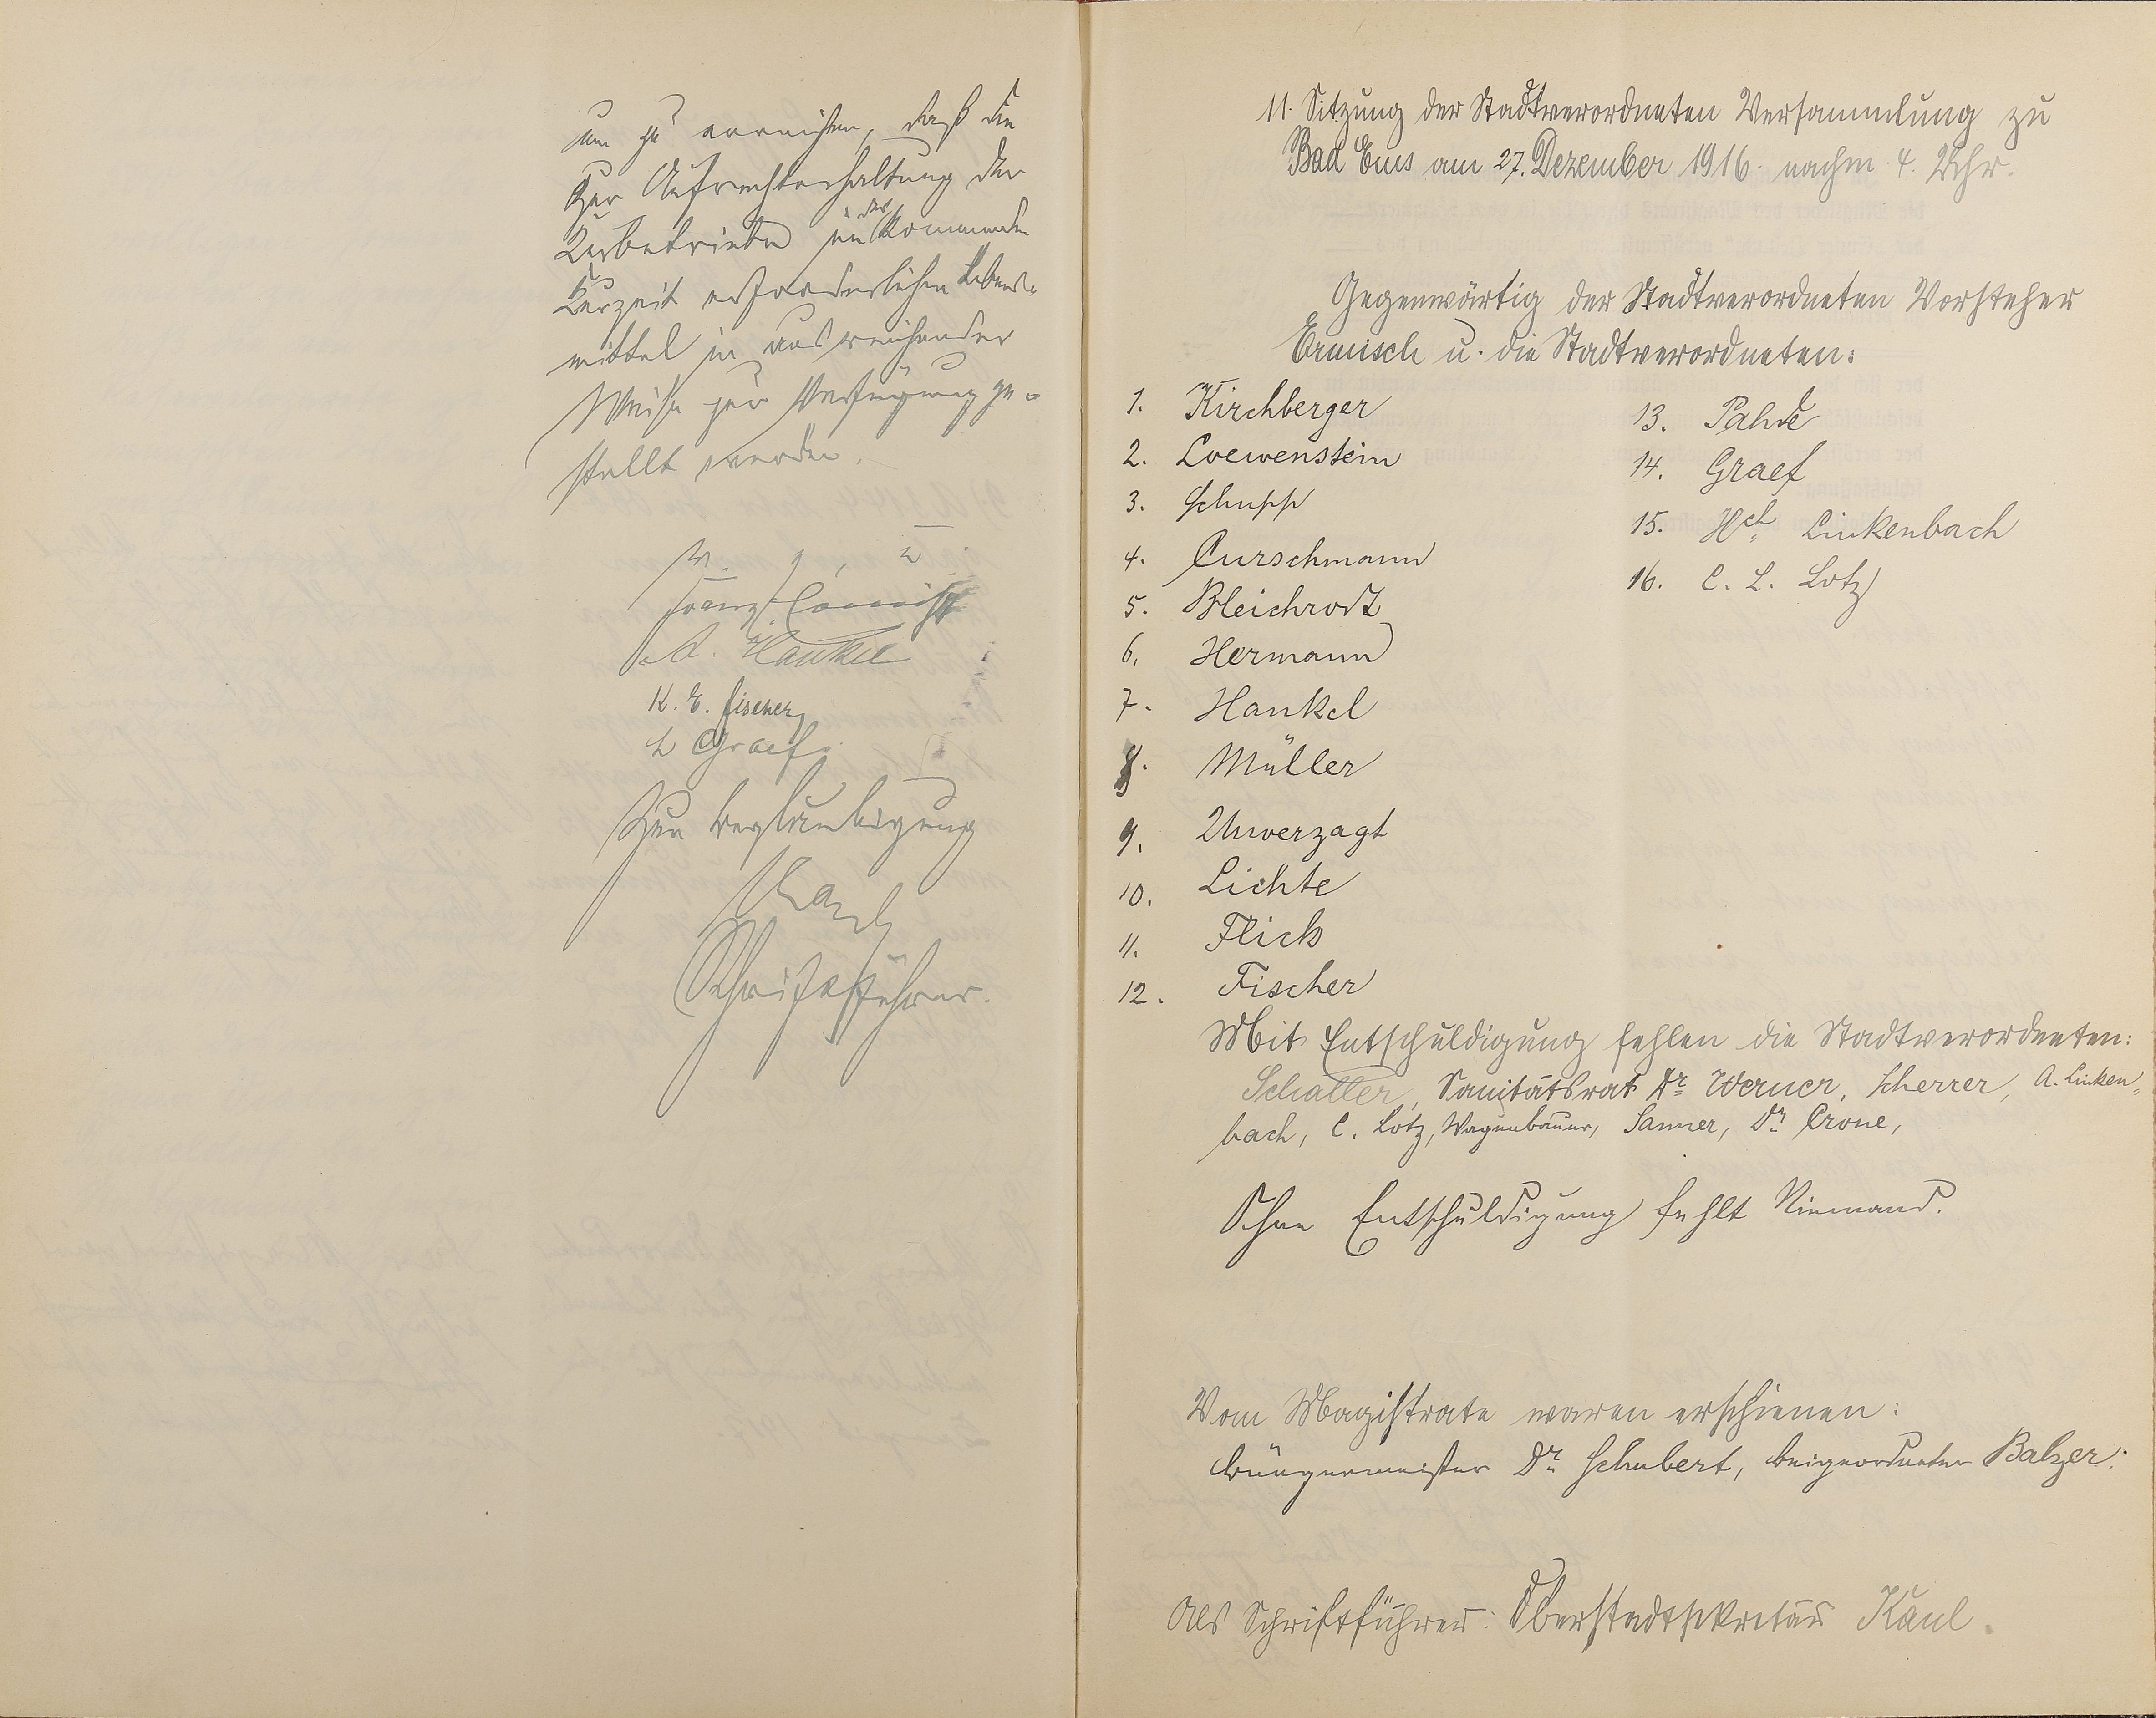 um zu erreichen, daß die
zur Aufrechterhaltung des
Kurbetriebes in der kommenden
Kurzeit erforderlichen Lebens-
mittel in ausreichender
Weise zur Verfügung ge-
stellt werden.
v. g. u.
Franz Ermisch
A. Hankel
K. E. Fischer
L Graef
Zur Beglaubigung
Kaul
Schriftführer.
11. Sitzung der Stadtverordneten Versammlung zu
Bad Ems am 27. Dezember 1916. nachm. 4. Uhr.
Gegenwärtig der Stadtverordneten Vorsteher
Ermisch u. die Stadtverordneten:
1. Kirchberger
2. Loewenstein
3. Schupp
4. Curschmann
5. Bleichrodt
6. Hermann
7. Hankel
8. Müller
9. Unverzagt
10. Lichte
11. Flick
12. Fischer
13. Pahde
14. Graef
15. Hch. Linkenbach
16. C. L. Lotz
Mit Entschuldigung fehlen die Stadtverordneten:
Schatter, Sanitätsrat Dr. Werner, Scherrer, A. Linken-
bach, C. Lotz, Wagenbauer, Sanner, Dr. Crone,
Ohne Entschuldigung fehlt Niemand.
Vom Magistrate waren erschienen:
Bürgermeister Dr. Schubert, Beigeordneter Balzer.
Als Schriftführer: Oberstadtsekretär Kaul.